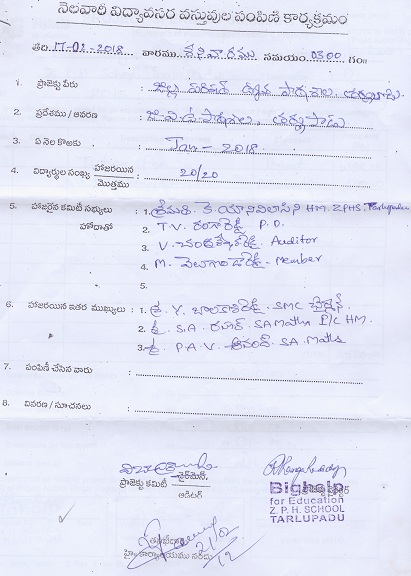 నెలవారీ విద్యావసర వస్తువుల పంపిణి కార్యక్రమం
తేది 17-02-2018 వారము శనివారము సమయం 03:00 గం॥
1. ప్రాజెక్టు పేరు : జిల్లా పరిషత్ ఉన్నత పాఠశాల, తర్లుపాడు
2. ప్రదేశము / ఆవరణ : జి.ప.ఉ పాఠశాల, తర్లుపాడు
3. ఏ నెల కొఱకు : Jan - 2018
4. విద్యార్థుల సంఖ్య హాజరయిన / మొత్తము : 20/20
5. హాజరైన కమిటీ సభ్యులు : 1. శ్రీమతి HM. ZPHS. Tarlupadu
హోదాతో 2. T.V. రంగారెడ్డి P.O.
3. V. Auditor
4. M. Member
5.
6. హాజరయిన ఇతర ముఖ్యులు : 1. శ్రీ. Y. SMC చైర్మన్.
2. శ్రీ. S.A. SA Maths I/C HM.
3. శ్రీ P.A.V. ఆనంద్. SA. Maths
7. పంపిణీ చేసిన వారు :
8. వివరణ / సూచనలు :
చైర్‌మెన్,
ప్రాజెక్టు కమిటీ
ఆడిటర్
Bighelp
for Education
Z. P. H. SCHOOL
TARLUPADU
21/02